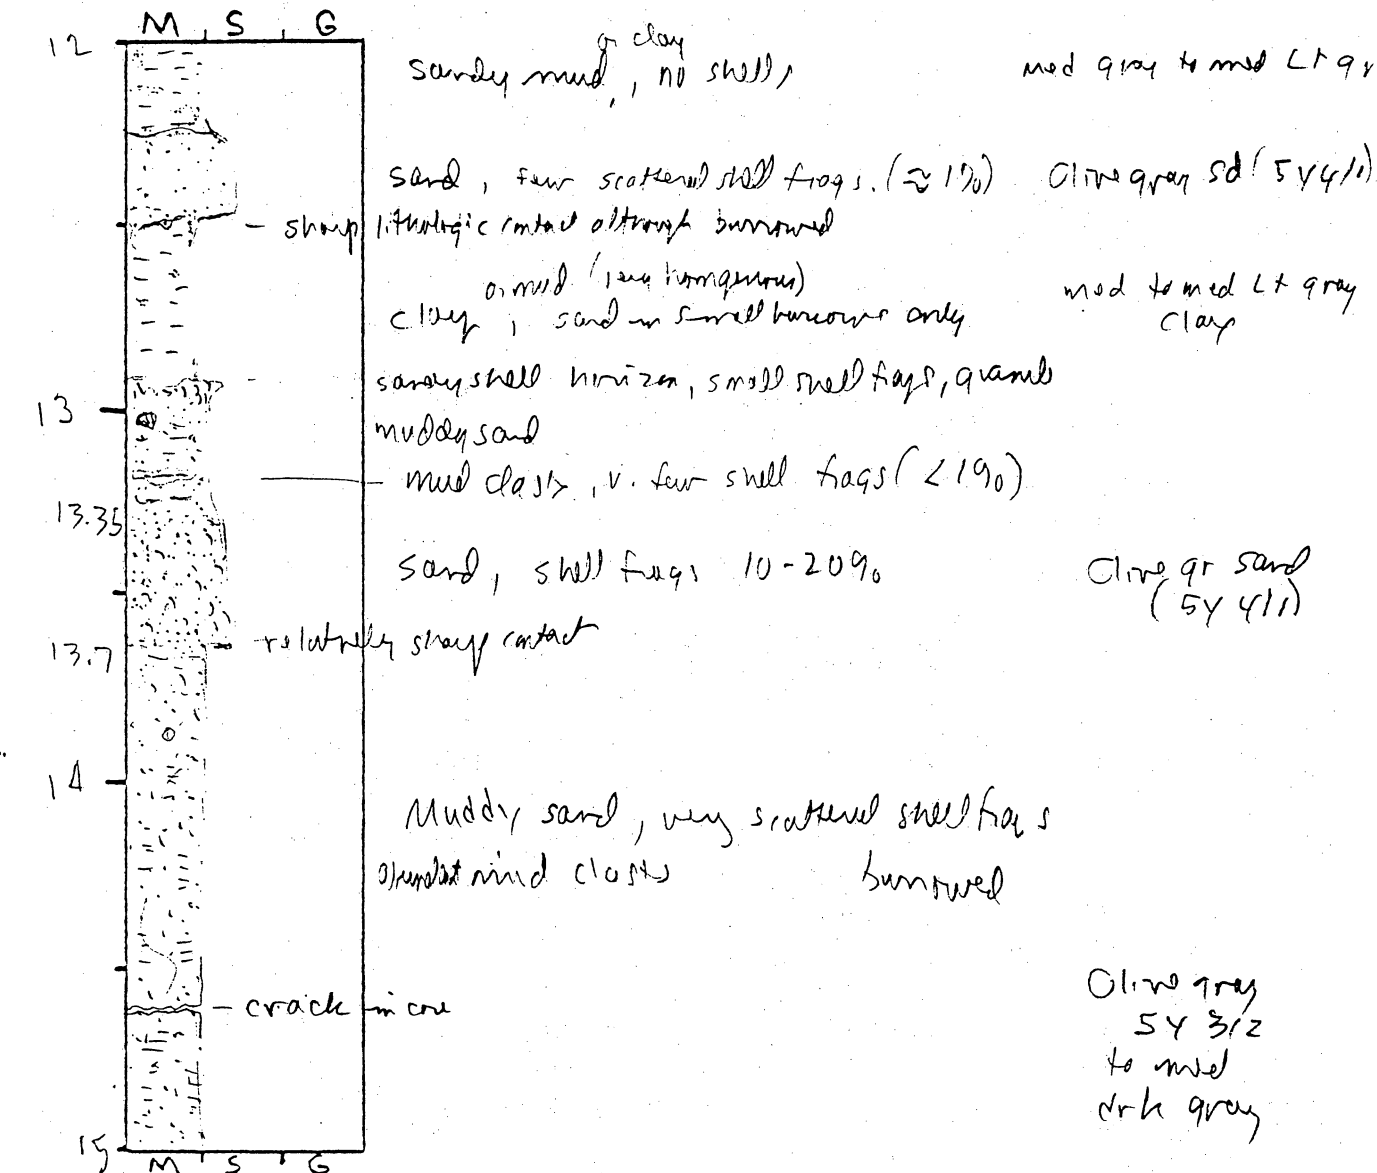 M S G
12
or clay
sandy mud, no shells
med gray to med Lt gr
sand, few scattered shell frags. (≈1%)
Olive gray sd (5Y4/1)
- sharp lithologic contact although burrowed
or mud (very homgenous)
clay, sand in small burrows only
med to med Lt gray
clay
sandy shell horizon, small shell frags,
13
muddy sand
mud clasts, v. few shell frags (<1%)
13.35
sand, shell frags 10-20%
Olive gr sand
(5Y 4/1)
- relatively sharp contact
13.7
14
Muddy sand, very scattered shell frags
abundant mud clasts burrowed
- crack in core
Olive gray
5Y 3/2
to med
drk gray
15
M S G